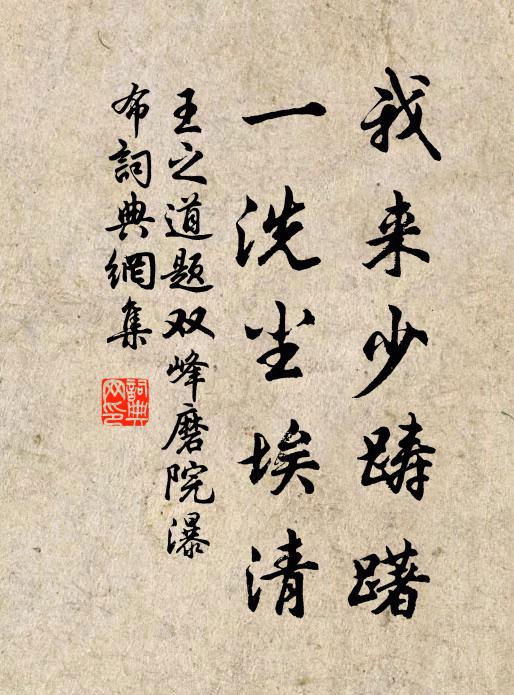 我来少踌躇
一洗尘埃清
王之道题双峰磨院瀑
布词典網集
詞典
网印